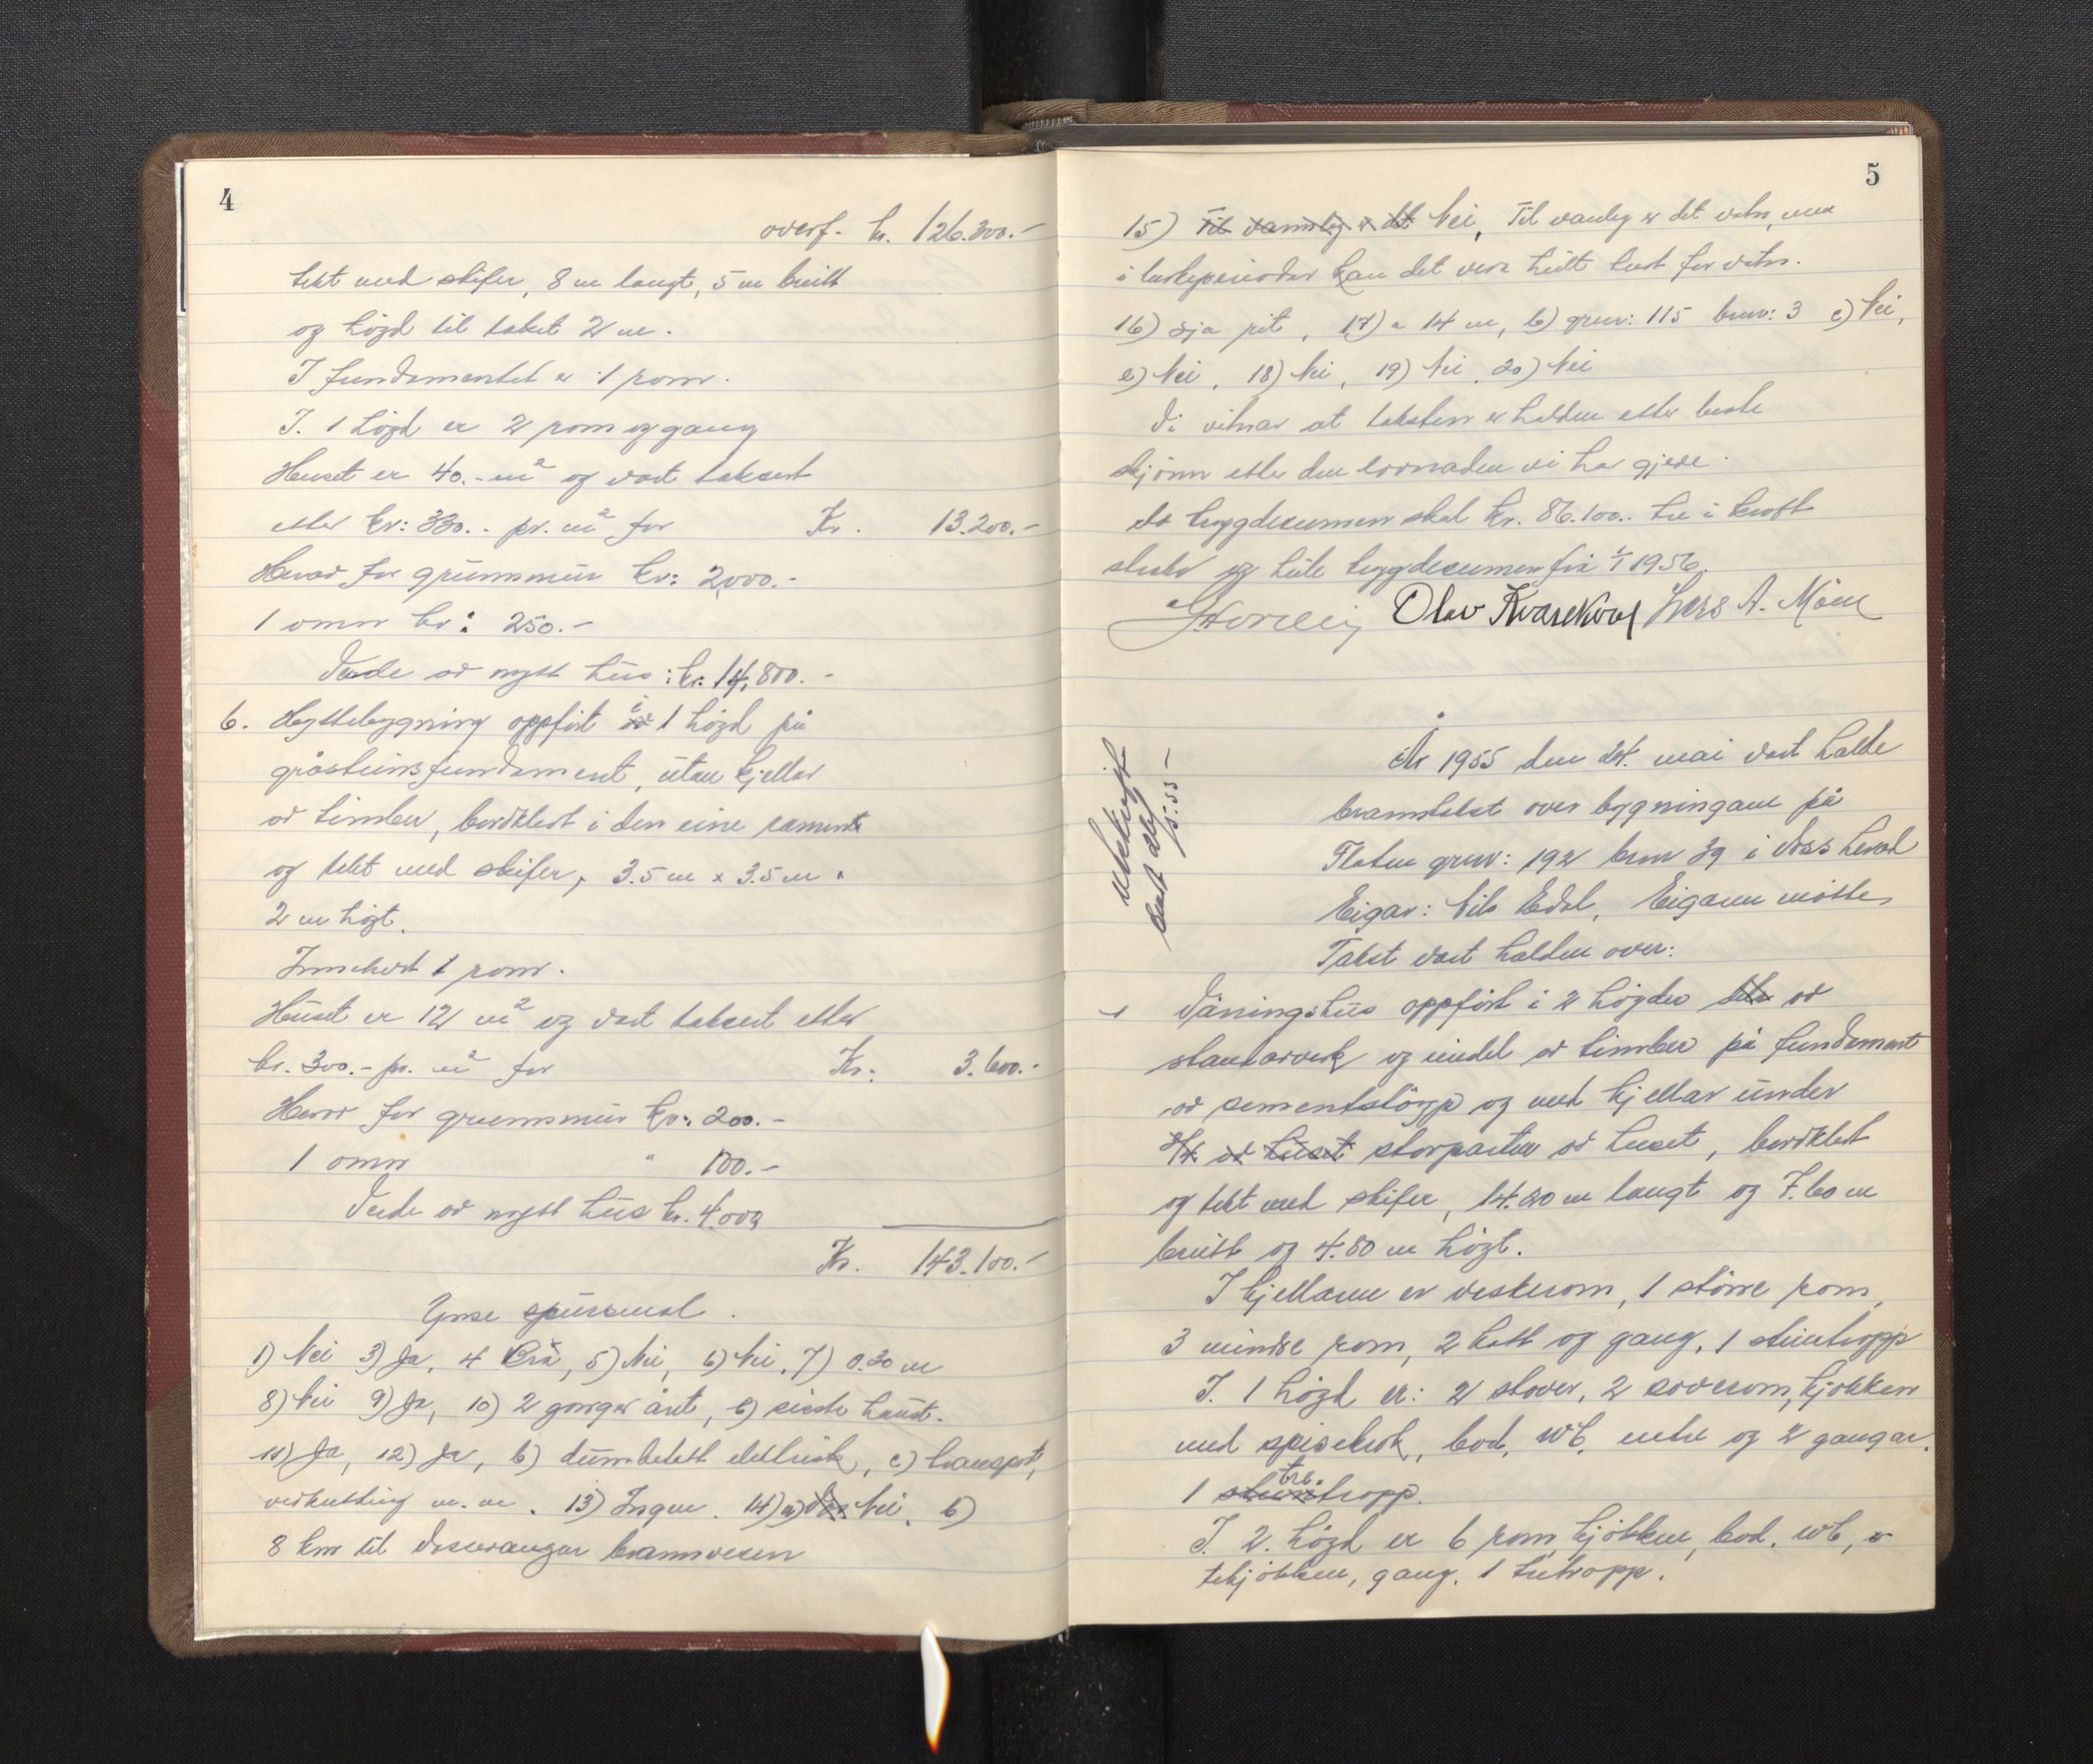 4
overf. kr. 126.300.-
tekt med skifer, 8 m langt, 5 m breitt
og høgd til taket 2 m.
I fundamentet er 1 rom.
I. 1 høgd er 2 rom og gang
Huset er 40.- m² og vart taksert
etter kr: 330.- pr. m² for Kr. 13.200.-
Herav for grunnmur kr: 2000.-
1 omn kr: 250.-
Verde av nytt hus: kr. 14,800.-
6. Hyttebygning oppført i 1 høgd på
gråsteinsfundament, utan kjellar
av timber, bordkledt i den eine
og tekt med skifer, 3.5 m x 3.5 m.
2 m høgt.
Innehert 1 rom.
Huset er 12 m² og vart taksert etter
kr. 300.- pr. m² for Kr: 3.600.-
Herav for grunnmur kr: 200.-
1 omn " 100.-
Verde av nytt hus kr. 4.000
Kr. 143.100.-
Ymse spursmal.
1) Nei 3) Ja, 4 Bra, 5) Nei, 6) Nei, 7) 0.30 m
8) Nei 9) Ja, 10) 2 gonger året, b) siste haust.
11) Ja, 12) Ja, b) elektrisk, c) transport,
vedkutting m. m. 13) Ingen. 14) a) Nei, b)
8 km til Vossevangen brannvesen
5
15) Til vannleg er det Nei, Til vanleg er det vatn, men
i turkeperiodar kan det vera heilt turt for vatn.
16) sjå rit, 17) a 14 m, b) gnr: 115 bnr: 3 c) Nei,
e) Nei, 18) Nei, 19) Nei, 20) Nei
Vi vitnar at taksten er halden etter beste
skjønn etter den lovnaden vi har gjeve.
Av brygdesummen skal kr. 86.100.- tre i kraft
straks og heile trygdesummen frå 1/1 1956.
Olav Kvarekval Lars A. Møen
År 1955 den 24. mai vart halde
branntakst over bygningane på
Flaten gnr: 192 bnr 39 i Voss herad
Eigar: Nils Edal, Eigaren møtte,
Takst vart halden over:
Utskrift
sendt
1 Våningshus oppført i 2 høgder av
stavarverk og eindel av timber på fundament
av sementstøyp og med kjellar under
av huset storparten av huset, bordkledt
og tekt med skifer, 14.20 m langt og 7.60 m
breitt og 4.80 m høgt.
I kjellaren er vaskerom, 1 større rom,
3 mindre rom, 2 kott og gang, 1 steintropp
I. 1 høgd er: 2 stover, 2 soverom, kjøkken
med spisekrok, bod, WC, entre og 2 gangar.
1 stein tre tropp.
I. 2. høgd er 6 rom, kjøkken, bod, WC,
tekjøkken, gang. 1 tretropp.